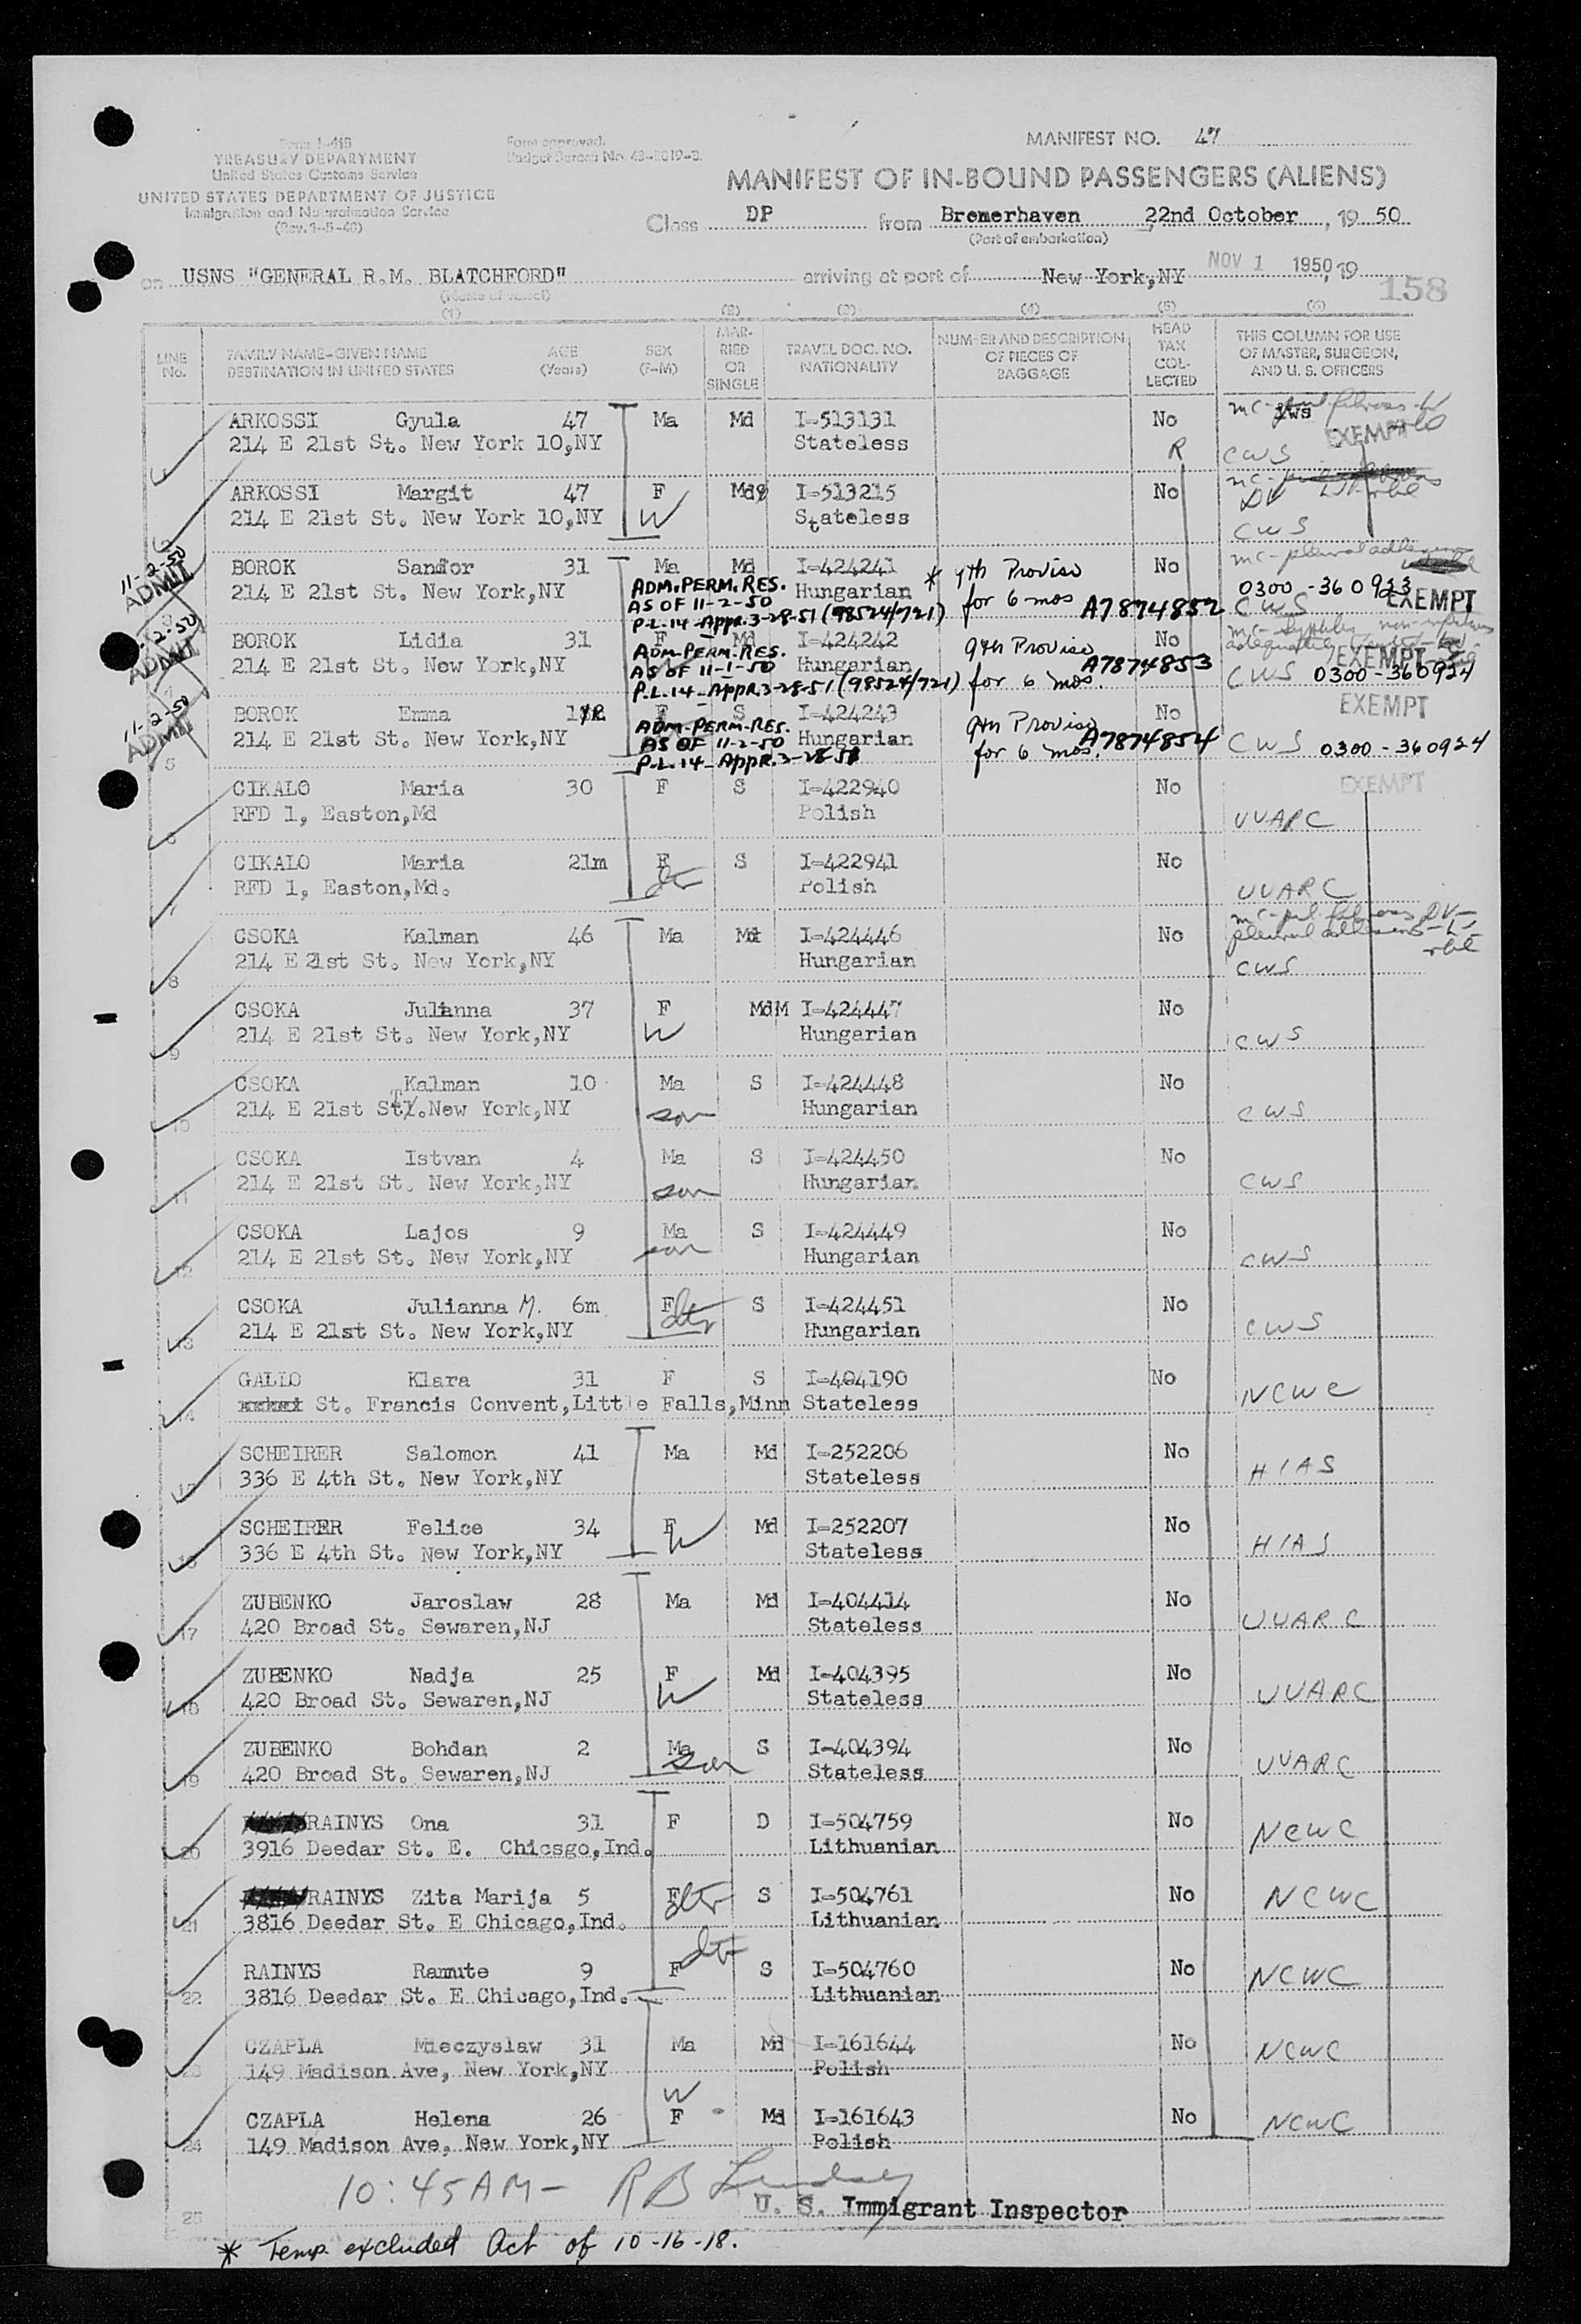 Form I-418
TREASURY DEPARTMENT
United States Customs Service
UNITED STATES DEPARTMENT OF JUSTICE
Immigration and Naturalization Service
Form approved.
Budget Bureau No. 43-R019-3.
MANIFEST NO. 47
MANIFEST OF IN-BOUND PASSENGERS (ALIENS)
Class DP from Bremerhaven, 22nd October, 19 50
(Port of embarkation)
on USNS "GENERAL R.M. BLATCHFORD" arriving at port of New York,NY NOV 1 1950, 19
(Name of vessel)
158
(1) (2) (3) (4) (5) (6)
LINE No. FAMILY NAME-GIVEN NAME DESTINATION IN UNITED STATES AGE (Years) SEX (F-M) MARRIED OR SINGLE TRAVEL DOC. NO. NATIONALITY NUMBER AND DESCRIPTION OF PIECES OF BAGGAGE HEAD TAX COLLECTED THIS COLUMN FOR USE OF MASTER, SURGEON, AND U. S. OFFICERS
ARKOSSI Gyula 47 Ma Md I-513131 No EXEMPT
214 E 21st St. New York 10,NY Stateless R CWS
ARKOSSI Margit 47 F Md I-513215 No
214 E 21st St. New York 10,NY W Stateless CWS
11-2-50 ADMIT
BOROK Sandor 31 Ma Md I-424241 * 9th Proviso No
214 E 21st St. New York,NY Hungarian for 6 mos A7874852 0300-360923 CWS EXEMPT
ADM. PERM. RES.
AS OF 11-2-50
P.L.14-Appr.3-28-51 (98524/721)
ADMIT
BOROK Lidia 31 F Md I-424242 9th Proviso No
214 E 21st St. New York,NY Hungarian for 6 mos. A7874853 EXEMPT CWS 0300-360924
ADM-PERM.-RES.
AS OF 11-1-50
P.L.14-APPR.3-28-51 (98524/721)
11-2-50 ADMIT
BOROK Emma F S I-424243 9th Proviso No EXEMPT
214 E 21st St. New York,NY Hungarian for 6 mos. A7874854 CWS 0300-360924
ADM-PERM-RES.
AS OF 11-2-50
P.L.14-APPR.3-28-51
5
CIKALO Maria 30 F S I-422940 No EXEMPT
RFD 1, Easton,Md Polish UUARC
6
CIKALO Maria 21m F S I-422941 No
RFD 1, Easton,Md. dtr Polish UUARC
7
CSOKA Kalman 46 Ma Md I-424446 No
214 E 21st St. New York,NY Hungarian CWS
8
CSOKA Julianna 37 F Md M I-424447 No
214 E 21st St. New York,NY W Hungarian CWS
9
CSOKA Kalman 10 Ma S I-424448 No
214 E 21st St. New York,NY son Hungarian CWS
10
CSOKA Istvan 4 Ma S I-424450 No
214 E 21st St. New York,NY son Hungarian CWS
11
CSOKA Lajos 9 Ma S I-424449 No
214 E 21st St. New York,NY son Hungarian CWS
12
CSOKA Julianna M. 6m F dtr S I-424451 No
214 E 21st St. New York,NY Hungarian CWS
13
GALLO Klara 31 F S I-404190 No
St. Francis Convent,Little Falls,Minn Stateless NCWC
14
SCHEIRER Salomon 41 Ma Md I-252206 No
336 E 4th St. New York,NY Stateless HIAS
SCHEIRER Felice 34 F W Md I-252207 No
336 E 4th St. New York,NY Stateless HIAS
16
ZUBENKO Jaroslaw 28 Ma Md I-404414 No
420 Broad St. Sewaren,NJ Stateless UUARC
17
ZUBENKO Nadja 25 F Md I-404395 No
420 Broad St. Sewaren,NJ W Stateless UUARC
18
ZUBENKO Bohdan 2 Ma S I-404394 No
420 Broad St. Sewaren,NJ son Stateless UUARC
19
RAINYS Ona 31 F D I-504759 No
3916 Deedar St. E. Chicsgo,Ind. Lithuanian NCWC
20
RAINYS Zita Marija 5 F dtr S I-504761 No
3816 Deedar St. E Chicago,Ind. Lithuanian NCWC
21
RAINYS Ramute 9 F dtr S I-504760 No
3816 Deedar St. E Chicago,Ind. Lithuanian NCWC
22
CZAPLA Mieczyslaw 31 Ma Md I-161644 No
149 Madison Ave, New York,NY Polish NCWC
23
CZAPLA Helena 26 W F Md I-161643 No
149 Madison Ave, New York,NY Polish NCWC
24
10:45AM- R B Lindsay
U. S. Immigrant Inspector
25
* Temp. excluded Act of 10-16-18.